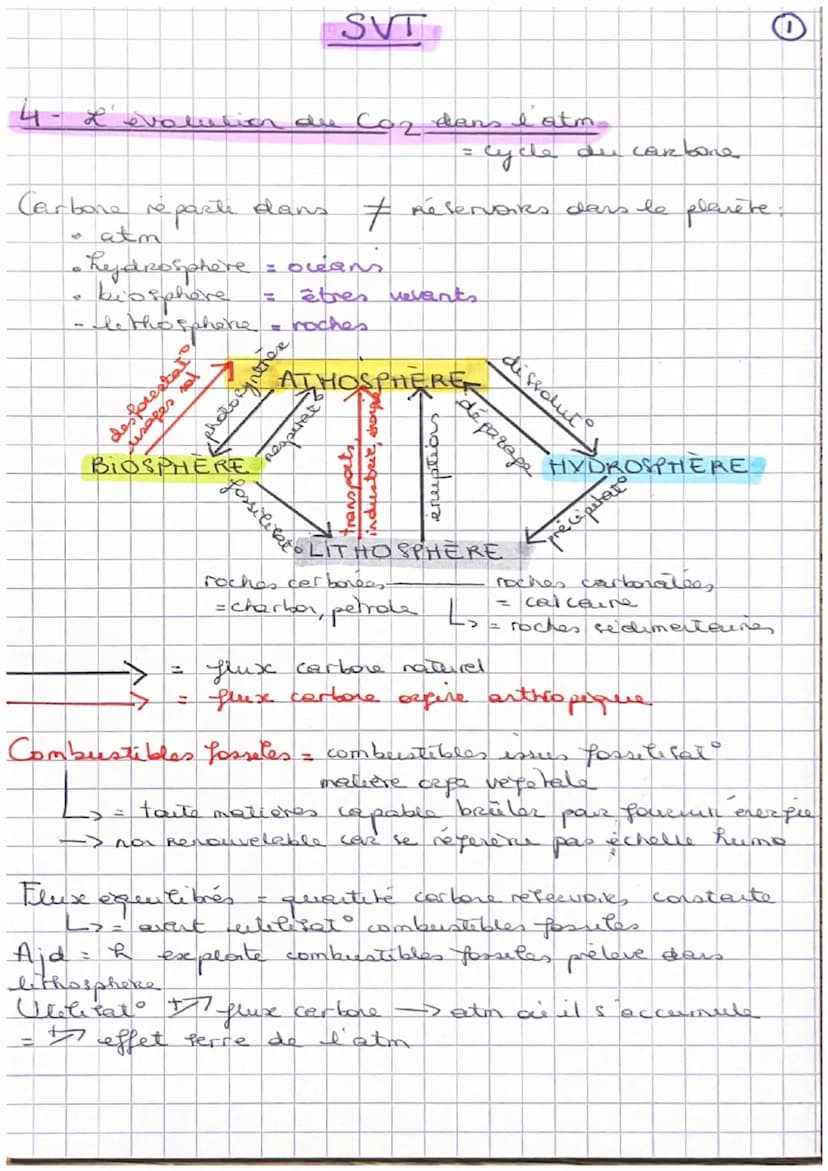 SVT
①
4 - L'évolution du CO2 dans l'atm
= cycle du carbone
Carbone réparti dans ≠ réservoirs dans la planète :
• atm
• hydrosphère = océans
• biosphère = êtres vivants
- lithosphère = roches
desforestat°
usages sol
photosynthèse
ATMOSPHÈRE
dissolut°
respirat°
transports,
industrie, énergie
éruptions
dégazage
BIOSPHÈRE
HYDROSPHÈRE
fossilisat°
précipitat°
LITHOSPHÈRE
roches carbonées
= charbon, pétrole
roches carbonatées
= calcaire
↳ = roches sédimentaires
→ = flux carbone naturel
→ = flux carbone origine anthropique
Combustibles fossiles = combustibles issus fossilisat°
matière orga végétale
↳ = toute matières capable brûler pour fournir énergie
→ non renouvelable car se régénère pas échelle huma
Flux équilibrés = quantité carbone réservoirs constante
↳ = avant utilisat° combustibles fossiles
Ajd = h exploite combustibles fossiles prélevé dans
lithosphère
Utilisat° +↗ flux carbone → atm où il s'accumule
= +↗ effet serre de l'atm